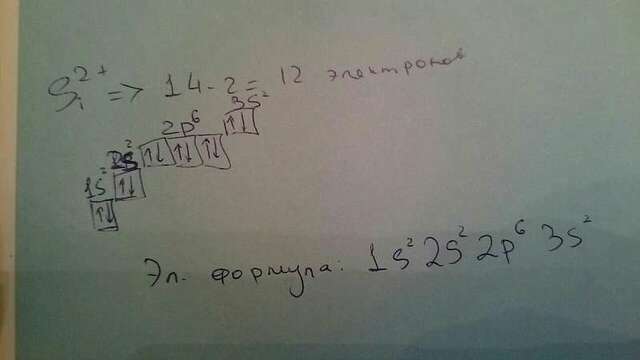 Si²⁺ => 14 - 2 = 12 электронов
3s²
2p⁶
2s²
1s²
Эл. формула: 1s² 2s² 2p⁶ 3s²